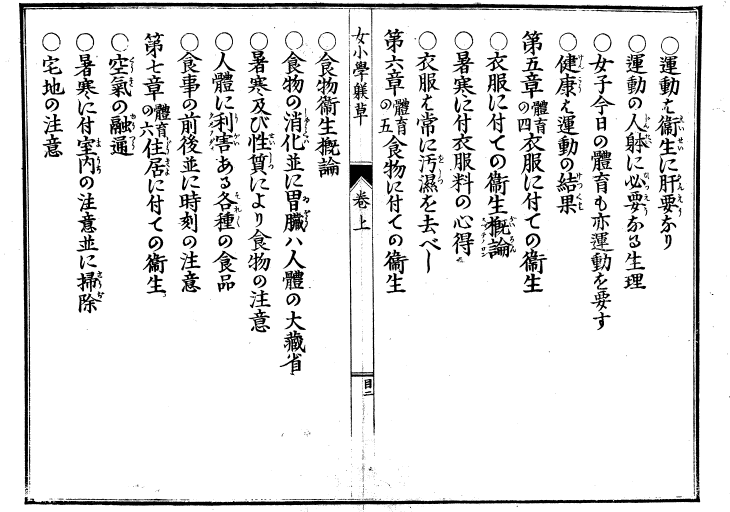 〇運動は衞生に肝要なり
〇運動の人躰に必要なる生理
〇女子今日の體育も亦運動を要す
〇健康は運動の結果
第五章體育の四衣服に付ての衞生
〇衣服に付ての衞生概論
〇暑寒に付衣服料の心得
〇衣服は常に汚濕を去べし
第六章體育の五食物に付ての衞生
女小學躾草 卷上 目二
〇食物衞生概論
〇食物の消化並に胃臟ハ人體の大藏省
〇暑寒及び性質により食物の注意
〇人體に利害ある各種の食品
〇食事の前後並に時刻の注意
第七章體育の六住居に付ての衞生
〇空氣の融通
〇暑寒に付室内の注意並に掃除
〇宅地の注意